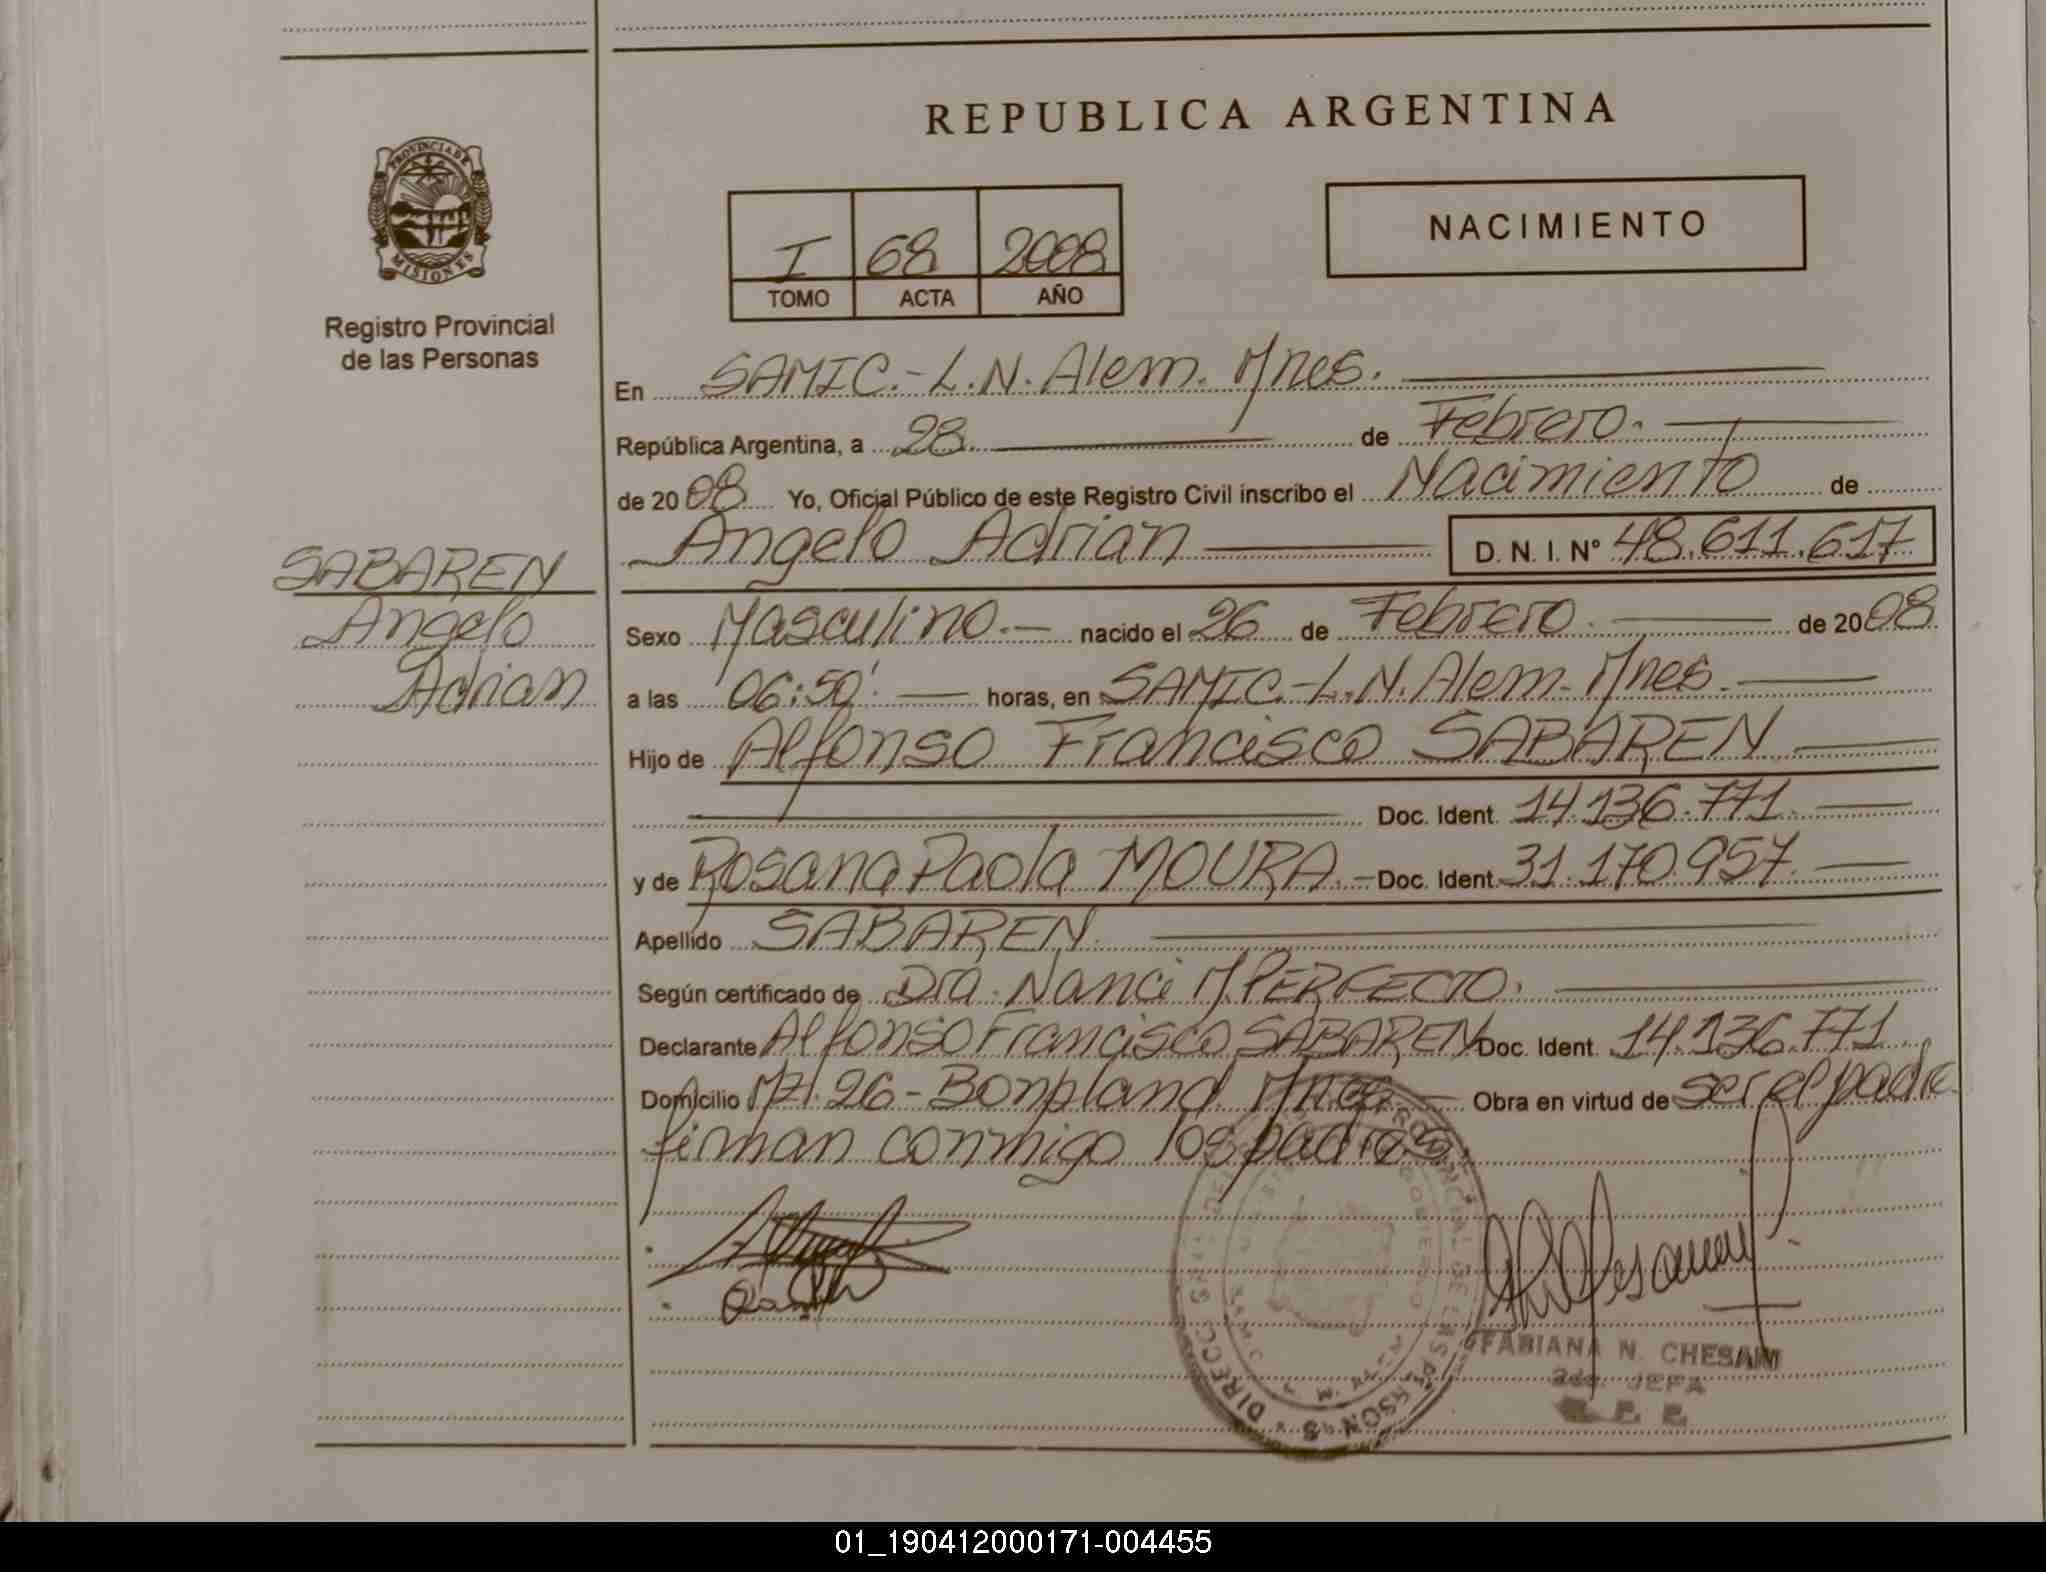 REPUBLICA ARGENTINA
PROVINCIA DE
MISIONES
Registro Provincial
de las Personas
I 68 2008
TOMO ACTA AÑO
NACIMIENTO
En SAMIC.-L.N.Alem. Mnes.
República Argentina, a 28 de Febrero.
de 2008 Yo, Oficial Público de este Registro Civil inscribo el Nacimiento de
Angelo Adrian D. N. I. Nº 48.611.617
SABAREN
Angelo
Adrian
Sexo Masculino.- nacido el 26 de Febrero. de 2008
a las 06:50' horas, en SAMIC-L.N.Alem-Mnes.
Hijo de Alfonso Francisco SABAREN
Doc. Ident. 14.136.771.
y de Rosana Paola MOURA.- Doc. Ident. 31.170.957.
Apellido SABAREN.
Según certificado de Dra. Nanci M. PERFECTO.
Declarante Alfonso Francisco SABAREN Doc. Ident. 14.136.771
Domicilio Mz. 26-Bonpland Mnes Obra en virtud de ser el padre
firman conmigo los padres
FABIANA N. CHESANI
JEFA
01_190412000171-004455